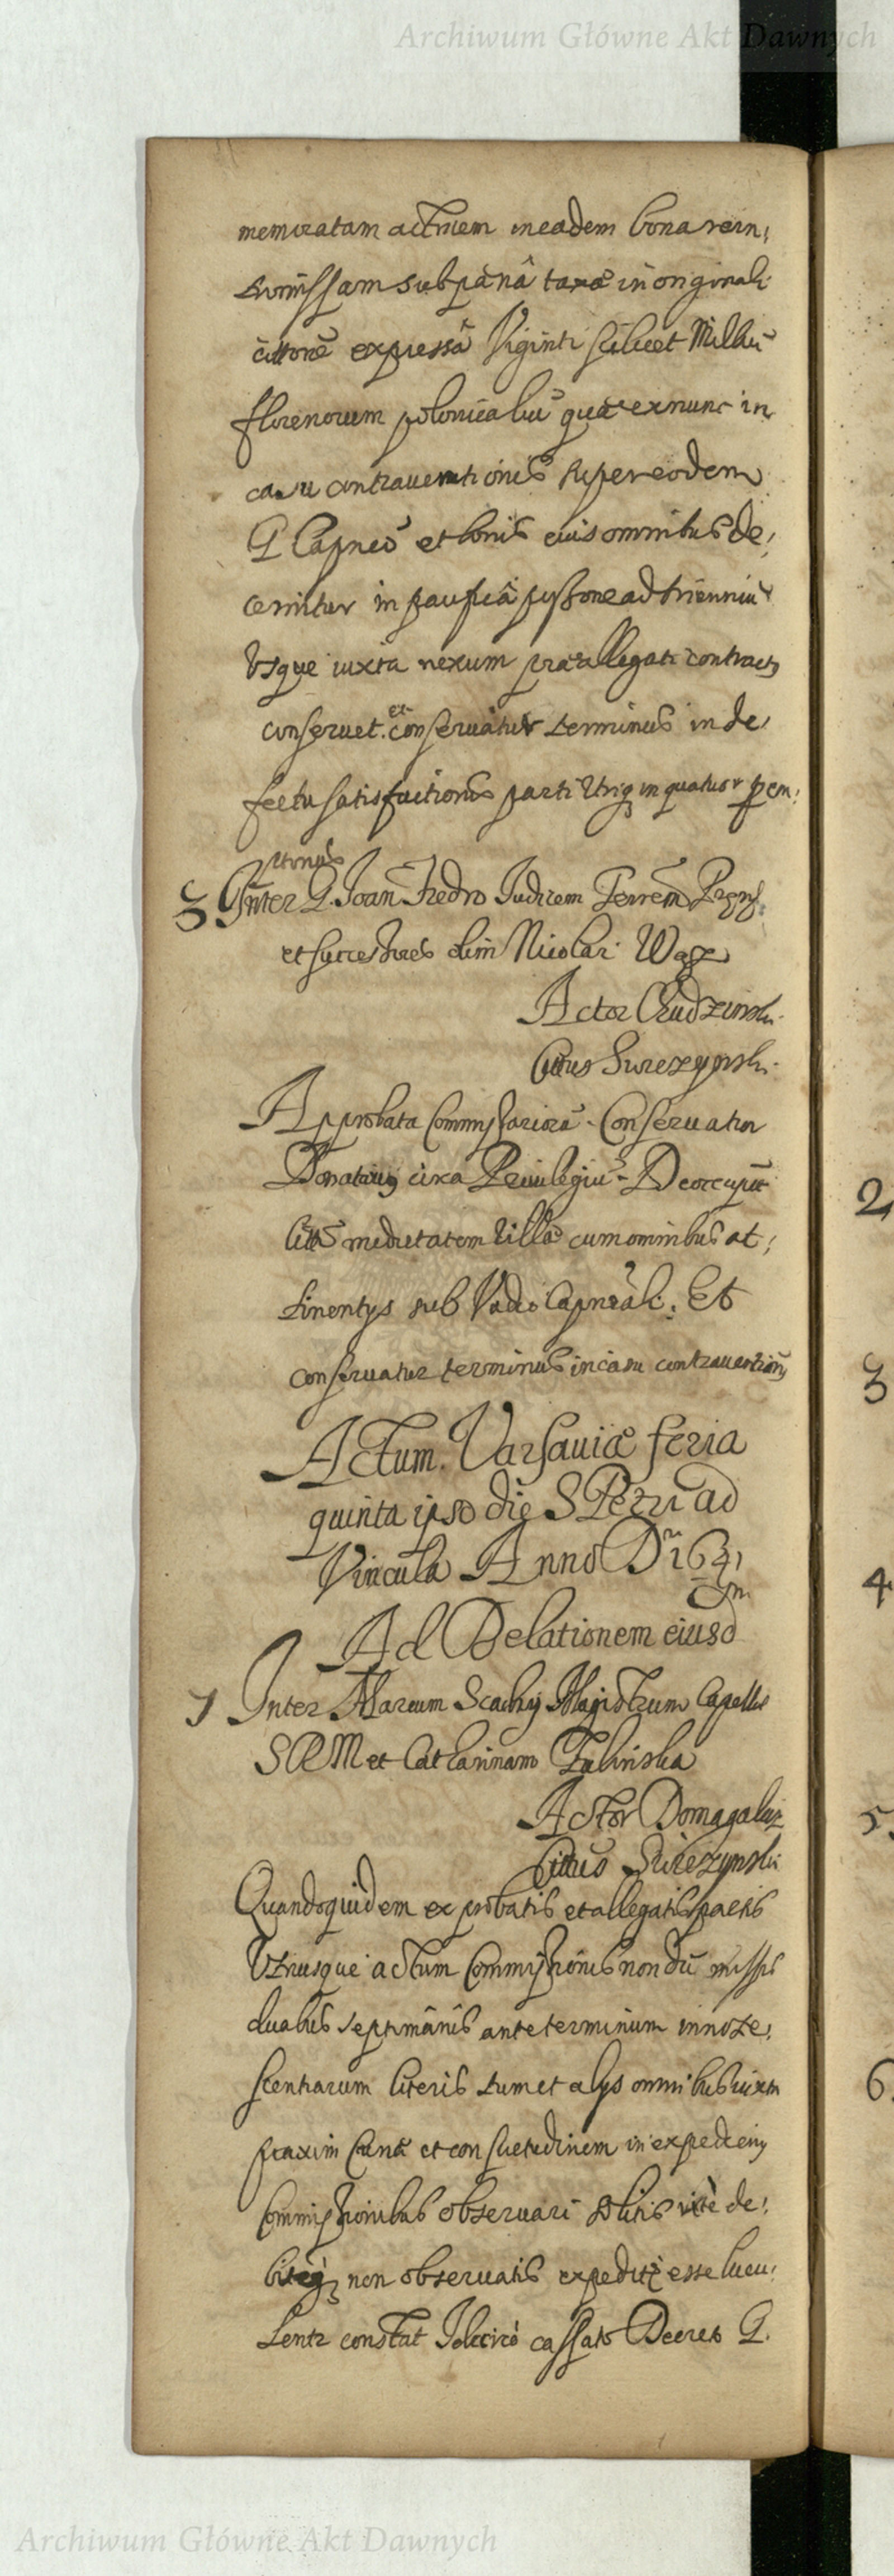 Archiwum Główne Akt Dawnych
memoratam actricem in eadem bona rein,
tromissam sub pænâ taxæ in originali
cittõne expressâ Viginti scilicet Milliũ
florenorum polonicaliũ quæ ex nunc in
casu contrauentionis super eodem
G Capneo et bonis eius omnibus de,
cernitur in pacifica pssione ad trienniũ
Vsque iuxta nexum præallegati contractus
conseruet. et conseruatur terminus in de,
fectu satisfactionis parti Utriq in quatuor
3 Inter G. Joan Fredro Judicem Terrem Præm.
et successores olim Nicolai
Actor Chudzinski.
Cittus Swiezynski.
Approbata Commissariorũ. Conseruatur
Donatarius circa Priuilegiũ.
Citts medietatem Villæ cum omnibus at,
tinentijs sub Vadio Capneali. Et
conseruatur terminus in casu contrauentionis
Actum. Varsauiæ feria
quinta ipso die S Petri ad
Vincula Anno Dni 1641
Ad Relationem eiusd
1 Inter Marcum Scachy Magistrum Capellæ
SRM et Catharinam Zalinska
Actor Domagalicz
Cittus Swiezynski
Quandoquidem ex probatis et allegatis partis
Vtriusque actum Commissionis non dũ missis
duabus septimânis ante terminum innote,
scentiarum literis tum et alijs omnibus iuxta
praxim Curiæ et consuetudinem in expedienis
Commissionibus obseruari solitis rite de,
biteq non obseruatis expeditũ esse lucu,
lenter constat Idcirco cassato Decreto G.
2
3
4
5.
6.
Archiwum Główne Akt Dawnych